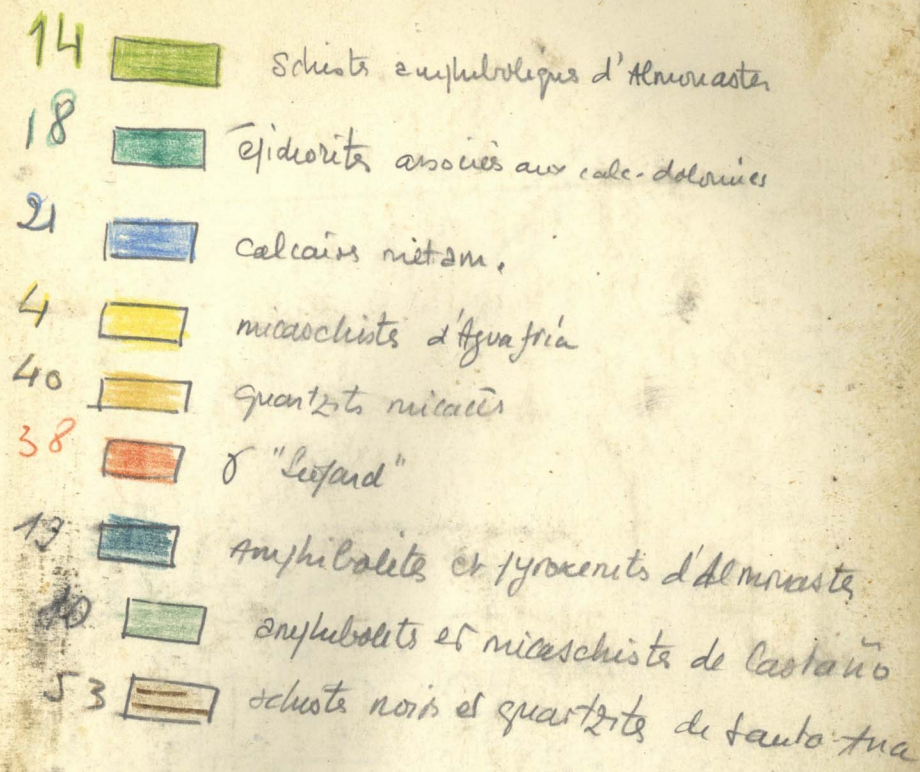 14 Schistes amphiboliques d'Almonaster
18 Épidiorites associés aux calc-dolomies
21 calcaires métam.
4 micaschistes d'Aguafría
40 quartzites micacés
38 γ "Leopard"
13 Amphibolites et pyroxenites d'Almonaster
10 amphibolites et micaschistes de Castaño
53 schistes noirs et quartzites de Santa Ana